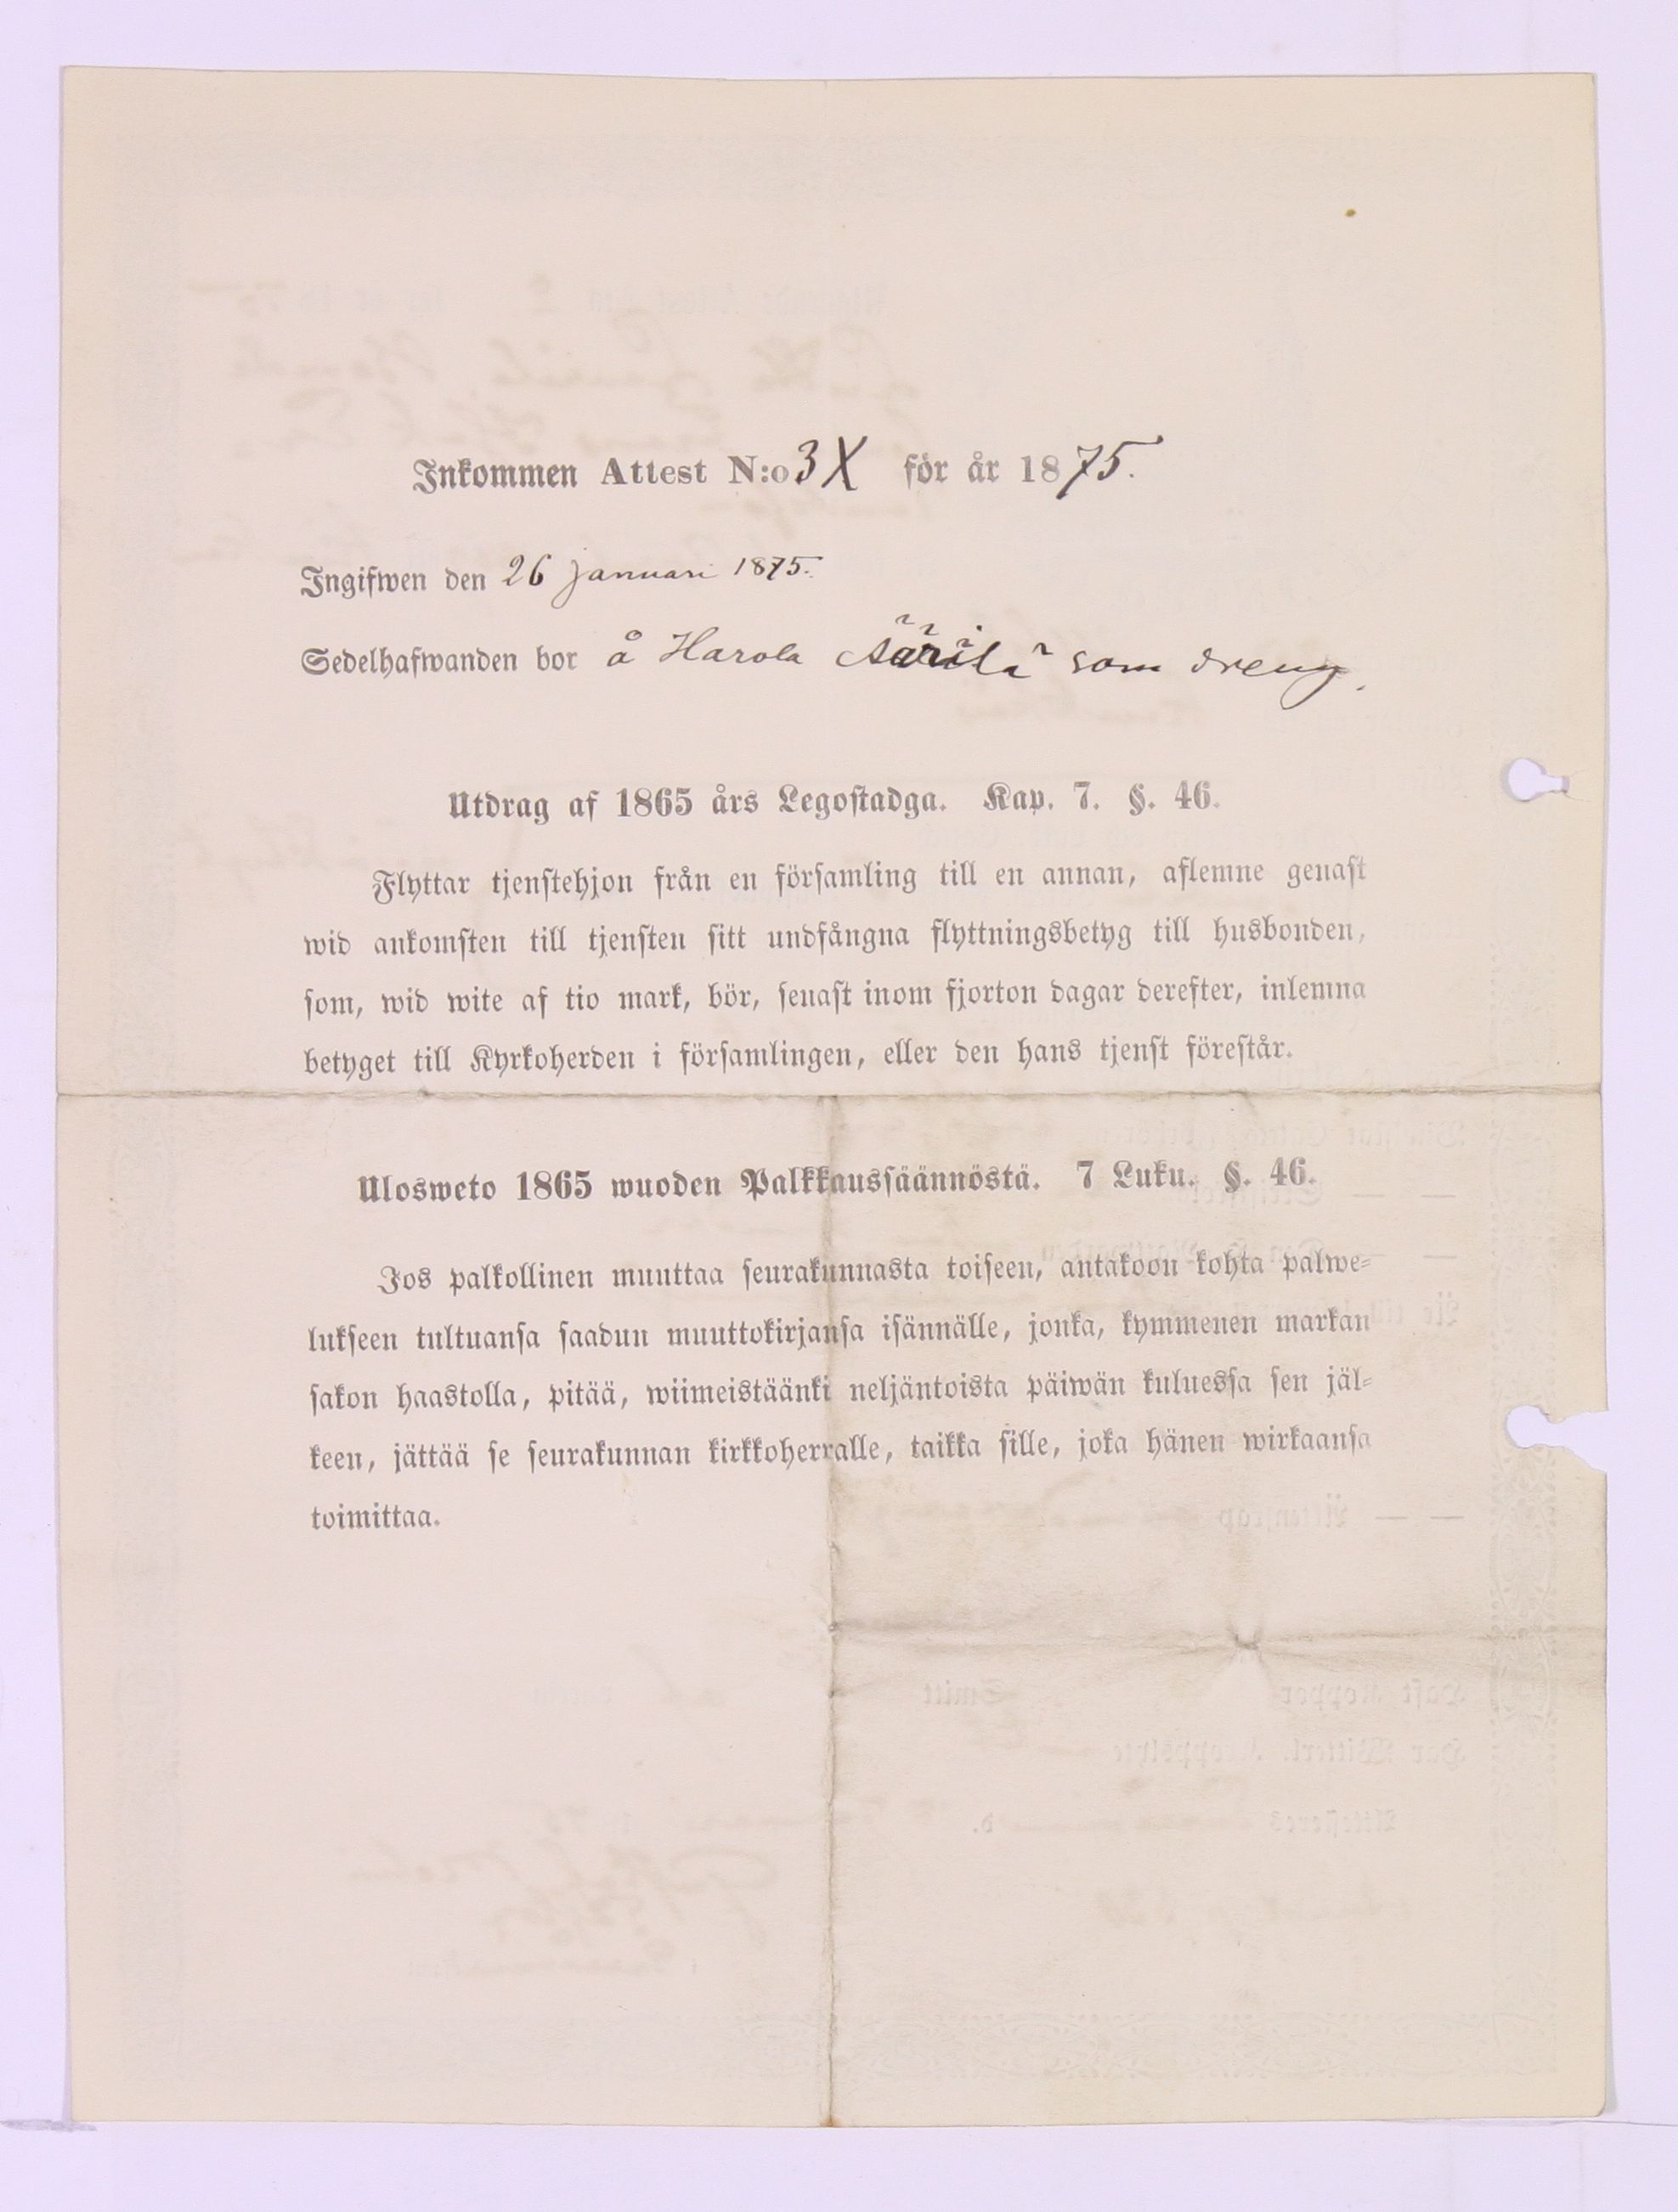 Inkommen Attest N:o 3 X för år 1875.
Ingifwen den 26 januari 1875.
Sedelhafwanden bor å Harola Äärilä som dreng.
Utdrag af 1865 års Legostadga. Kap. 7. §. 46.
Flyttar tjenstehjon från en församling till en annan, aflemne genast
wid ankomsten till tjensten sitt undfångna flyttningsbetyg till husbonden,
som, wid wite af tio mark, bör, senast inom fjorton dagar derefter, inlemna
betyget till Kyrkoherden i församlingen, eller den hans tjenst förestår.
Ulosweto 1865 wuoden Palkkaussäännöstä. 7 Luku. §. 46.
Jos palkollinen muuttaa seurakunnasta toiseen, antakoon kohta palwe-
lukseen tultuansa saadun muuttokirjansa isännälle, jonka, kymmenen markan
sakon haastolla, pitää, wiimeistäänki neljäntoista päiwän kuluessa sen jäl-
keen, jättää se seurakunnan kirkkoherralle, taikka sille, joka hänen wirkaansa
toimittaa.